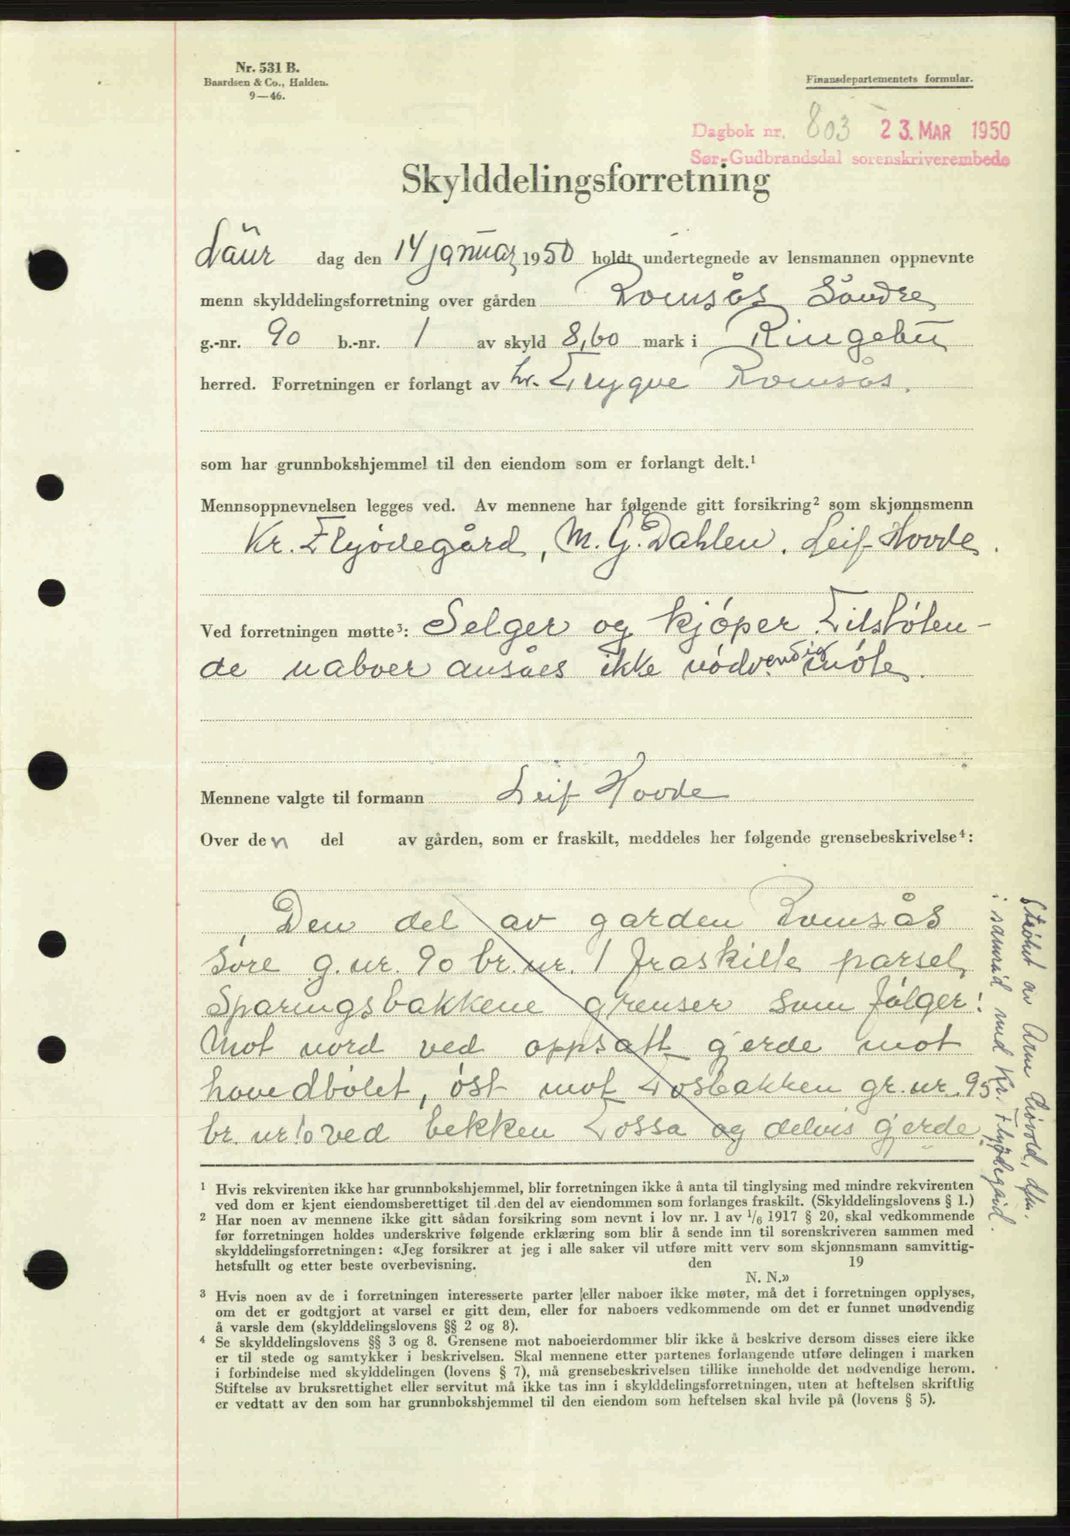 Nr. 531 B.
Baardsen & Co., Halden.
9—46.
Finansdepartementets formular.
Dagbok nr. 803 23. MAR 1950
Sør-Gudbrandsdal sorenskriverembede
Skylddelingsforretning
Laur dag den 14 januar 1950 holdt undertegnede av lensmannen oppnevnte
menn skylddelingsforretning over gården Romsås Søndre
g.-nr. 90 b.-nr. 1 av skyld 8,60 mark i Ringebu
herred. Forretningen er forlangt av hr. Trygve Romsås.
som har grunnbokshjemmel til den eiendom som er forlangt delt.¹
Mennsoppnevnelsen legges ved. Av mennene har følgende gitt forsikring² som skjønnsmenn
Kr. Flyødegård, M. G. Dahlen. Leif Hovde.
Ved forretningen møtte³: Selger og kjøper. Tilstøten-
de naboer ansåes ikke nødvendig møte.
Mennene valgte til formann Leif Hovde
Over den del av gården, som er fraskilt, meddeles her følgende grensebeskrivelse⁴:
Den del av garden Romsås
Søre g. nr. 90 br. nr. 1 fraskille parsel
Sparingsbakkene grenser som følger:
Mot nord ved oppsatt gjerde mot
hovedbølet, øst mot Tosbakken gr. nr. 95
br. nr. 10 ved bekken Tossa og delvis gjerde.
Strøket av Arne
i samråd med Kr. Flyødegård.
¹ Hvis rekvirenten ikke har grunnbokshjemmel, blir forretningen ikke å anta til tinglysing med mindre rekvirenten
ved dom er kjent eiendomsberettiget til den del av eiendommen som forlanges fraskilt. (Skylddelingslovens § 1.)
² Har noen av mennene ikke gitt sådan forsikring som nevnt i lov nr. 1 av 1/6 1917 § 20, skal vedkommende
før forretningen holdes underskrive følgende erklæring som blir å sende inn til sorenskriveren sammen med
skylddelingsforretningen: «Jeg forsikrer at jeg i alle saker vil utføre mitt verv som skjønnsmann samvittig-
hetsfullt og etter beste overbevisning. den 19
N. N.»
³ Hvis noen av de i forretningen interesserte parter eller naboer ikke møter, må det i forretningen opplyses,
om det er godtgjort at varsel er gitt dem, eller for naboers vedkommende om det er funnet unødvendig
å varsle dem (skylddelingslovens §§ 2 og 8).
⁴ Se skylddelingslovens §§ 3 og 8. Grensene mot naboeierdommer blir ikke å beskrive dersom disses eiere ikke
er til stede og samtykker i beskrivelsen. Skal mennene etter partenes forlangende utføre delingen i marken
i forbindelse med skylddelingen (lovens § 7), må grensebeskrivelsen tillike inneholde det nødvendige herom.
Stiftelse av bruksrettighet eller servitut må ikke tas inn i skylddelingsforretningen, uten at heftelsen skriftlig
er vedtatt av den som har grunnbokshjemmel til den eiendom som heftelsen skal hvile på (lovens § 5).